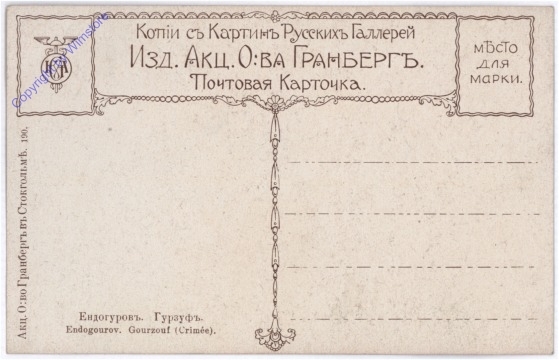 Копіи съ Картинъ Русскихъ Галлерей
Изд. Акц. О:ва Гранбергъ.
Почтовая Карточка.
мѣсто
для
марки.
Copyright by Wilnstore
Акц. О:во Гранбергъ въ Стокгольмѣ. 190.
Ендогуровъ. Гурзуфъ.
Endogourov. Gourzouf (Crimée).